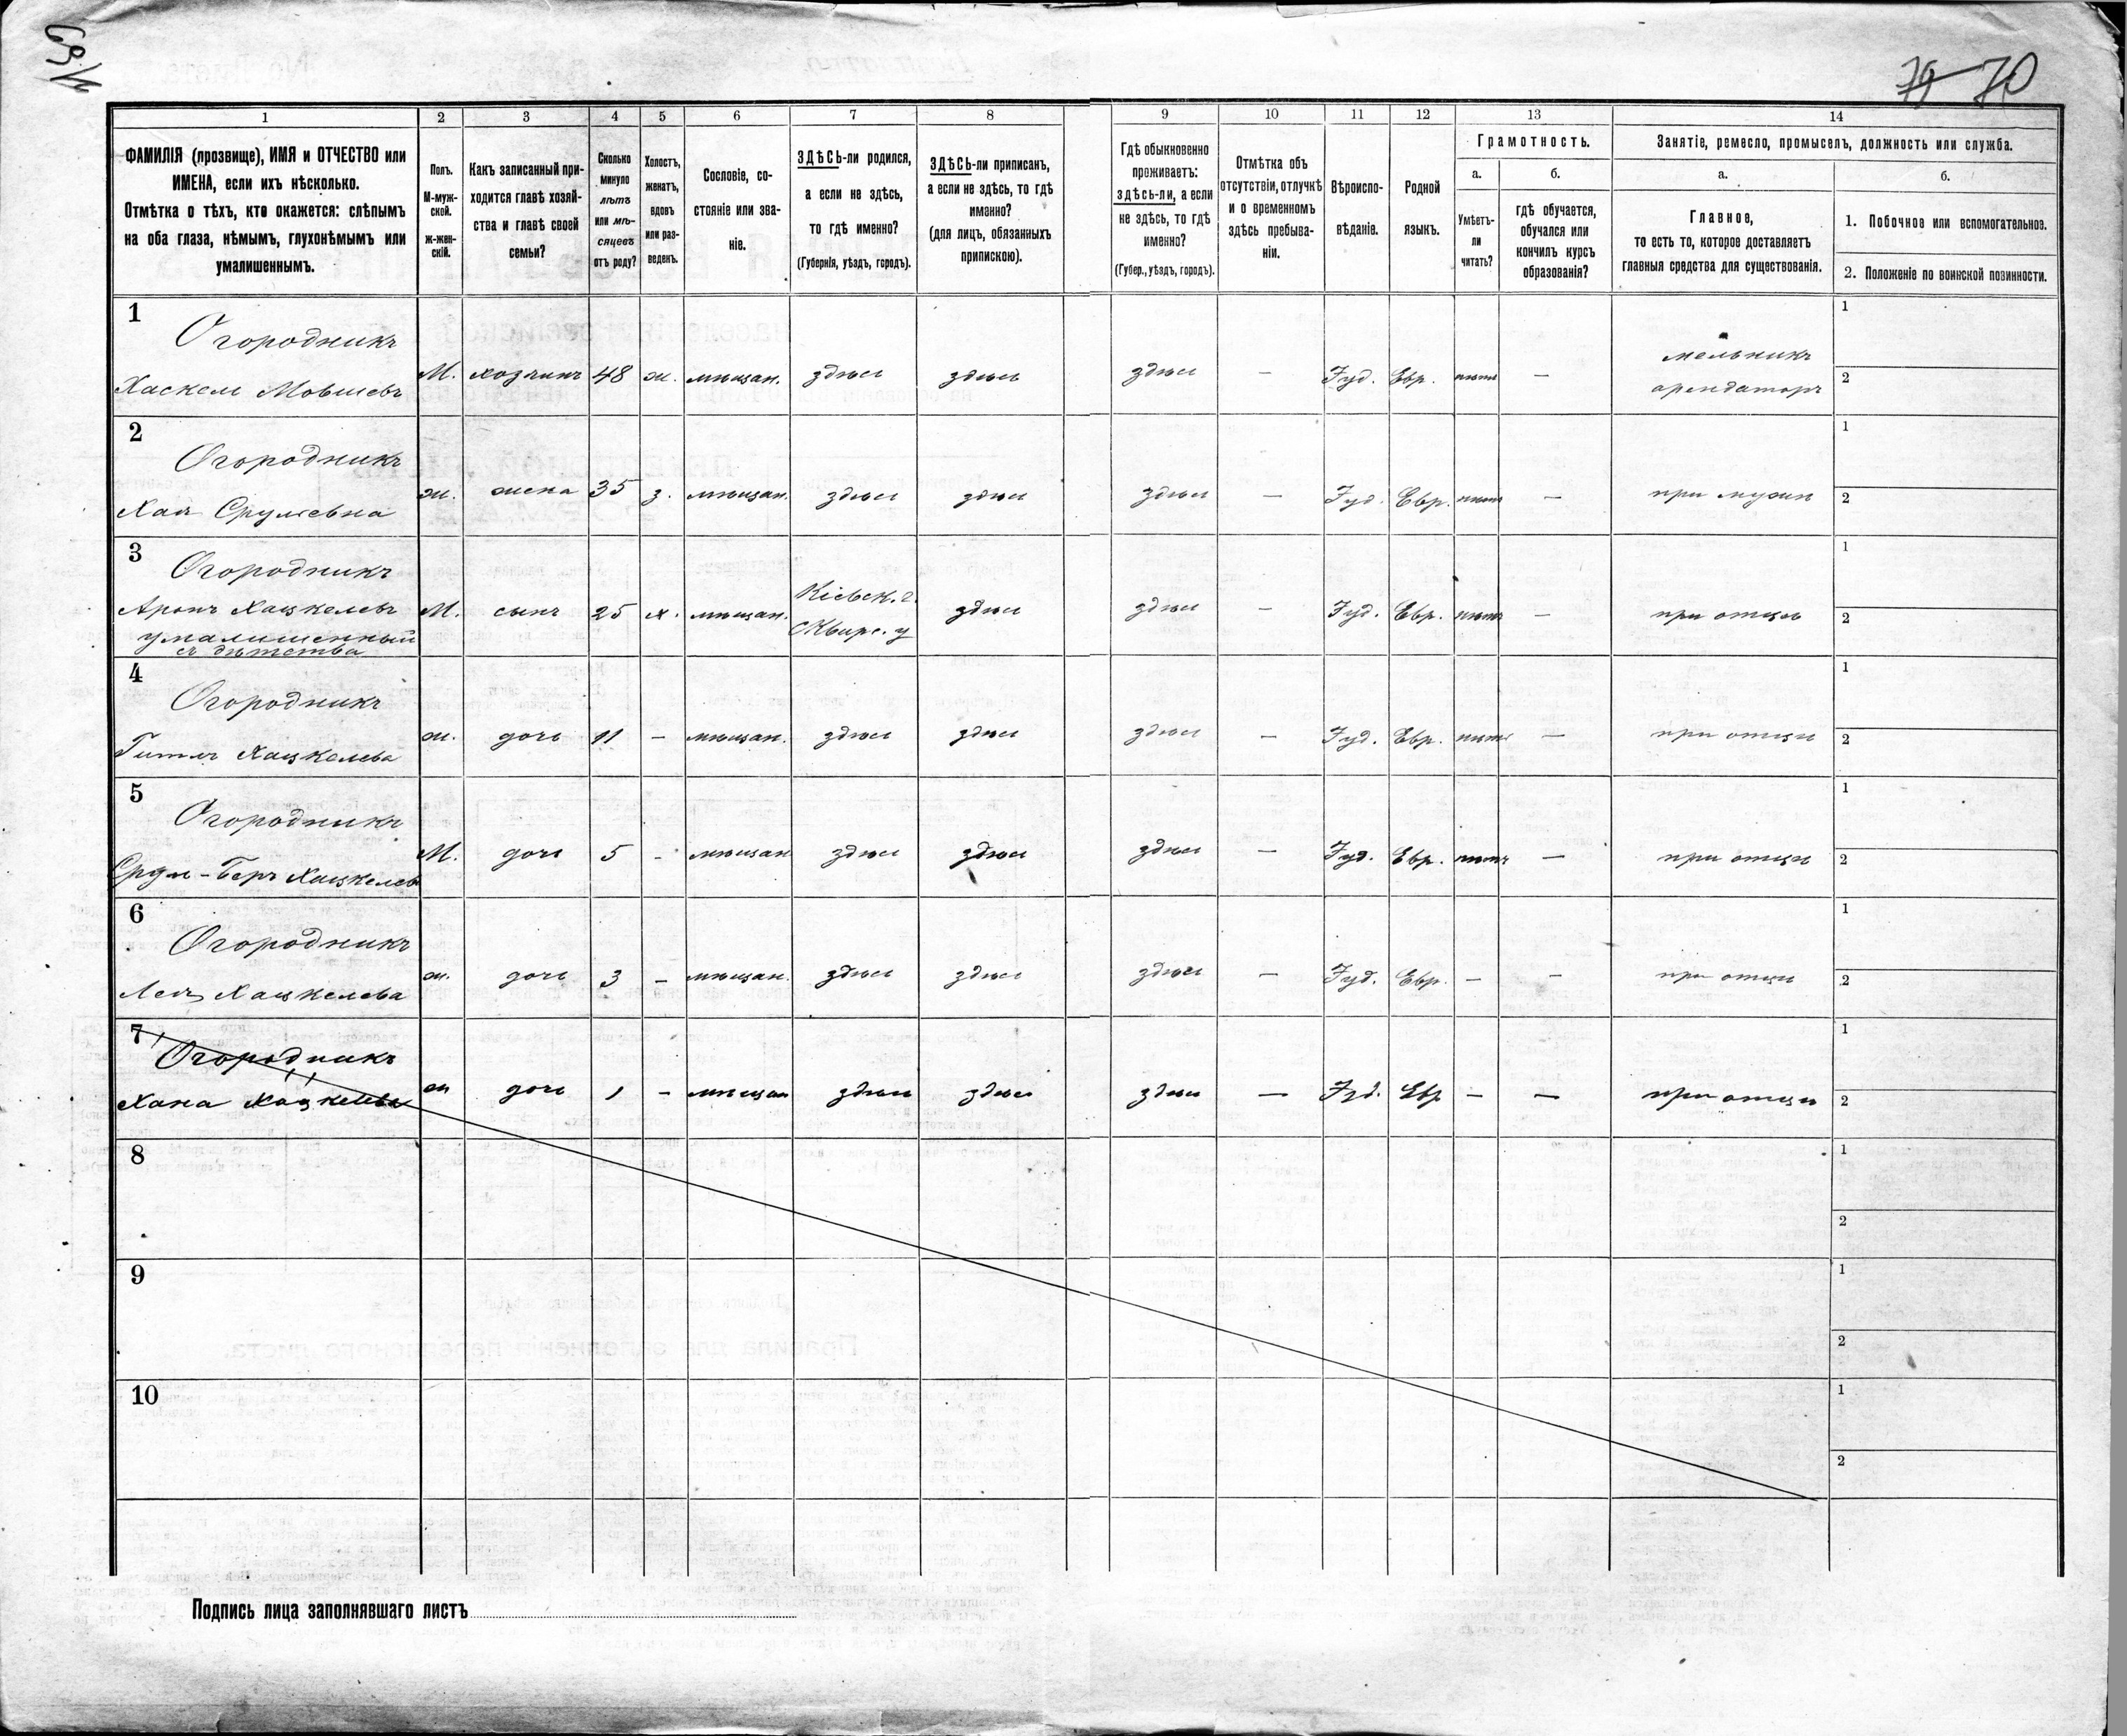 79 70
1 2 3 4 5 6 7 8 9 10 11 12 13 14
ФАМИЛІЯ (прозвище), ИМЯ и ОТЧЕСТВО или
ИМЕНА, если ихъ нѣсколько.
Отмѣтка о тѣхъ, кто окажется: слѣпымъ
на оба глаза, нѣмымъ, глухонѣмымъ или
умалишеннымъ.
Полъ.
М-муж-
ской.
ж-жен-
скій.
Какъ записанный при-
ходится главѣ хозяй-
ства и главѣ своей
семьи?
Сколько
минуло
лѣтъ
или мѣ-
сяцевъ
отъ роду?
Холостъ,
женатъ,
вдовъ
или раз-
веденъ.
Сословіе, со-
стояніе или зва-
ніе.
ЗДѢСЬ-ли родился,
а если не здѣсь,
то гдѣ именно?
(Губернія, уѣздъ, городъ).
ЗДѢСЬ-ли приписанъ,
а если не здѣсь, то гдѣ
именно?
(для лицъ, обязанныхъ
припискою).
Гдѣ обыкновенно
проживаетъ:
здѣсь-ли, а если
не здѣсь, то гдѣ
именно?
(Губер., уѣздъ, городъ).
Отмѣтка объ
отсутствіи, отлучкѣ
и о временномъ
здѣсь пребыва-
ніи.
Вѣроиспо-
вѣданіе.
Родной
языкъ.
Грамотность.
а.
Умѣетъ-
ли
читать?
б.
гдѣ обучается,
обучался или
кончилъ курсъ
образованія?
Занятіе, ремесло, промыселъ, должность или служба.
а.
Главное,
то есть то, которое доставляетъ
главныя средства для существованія.
б.
1. Побочное или вспомогательное.
2. Положеніе по воинской повинности.
1 Огородникъ 1
мельникъ
Хаскель Мовшевъ М. хозяинъ 48 ж. мѣщан. здѣсь здѣсь здѣсь — Іуд. Евр. нѣтъ — арендаторъ 2
2 Огородникъ 1
Хая Срулевна ж. жена 35 з. мѣщан. здѣсь здѣсь здѣсь — Іуд. Евр. нѣтъ — при мужѣ 2
3 Огородникъ 1
Кіевск. г.
Аронъ Хацкелевъ М. сынъ 25 х. мѣщан. Сквирс. у здѣсь здѣсь — Іуд. Евр. нѣтъ — при отцѣ 2
умалишенный
съ дѣтства
4 Огородникъ 1
Гитля Хацкелева ж. дочь 11 — мѣщан. здѣсь здѣсь здѣсь — Іуд. Евр. нѣтъ — при отцѣ 2
5 Огородникъ 1
Срул-Беръ Хацкелев М. дочь 5 - мѣщан здѣсь здѣсь здѣсь — Іуд. Евр. нѣтъ — при отцѣ 2
6 Огородникъ 1
Лея Хацкелева ж. дочь 3 — мѣщан. здѣсь здѣсь здѣсь — Іуд. Евр. — — при отцѣ 2
7 Огородникъ 1
Хана Хацкелева ж дочь 1 — мѣщан здѣсь здѣсь здѣсь — Іуд. Евр — — при отцѣ 2
8 1
2
9 1
2
10 1
2
Подпись лица заполнявшаго листъ